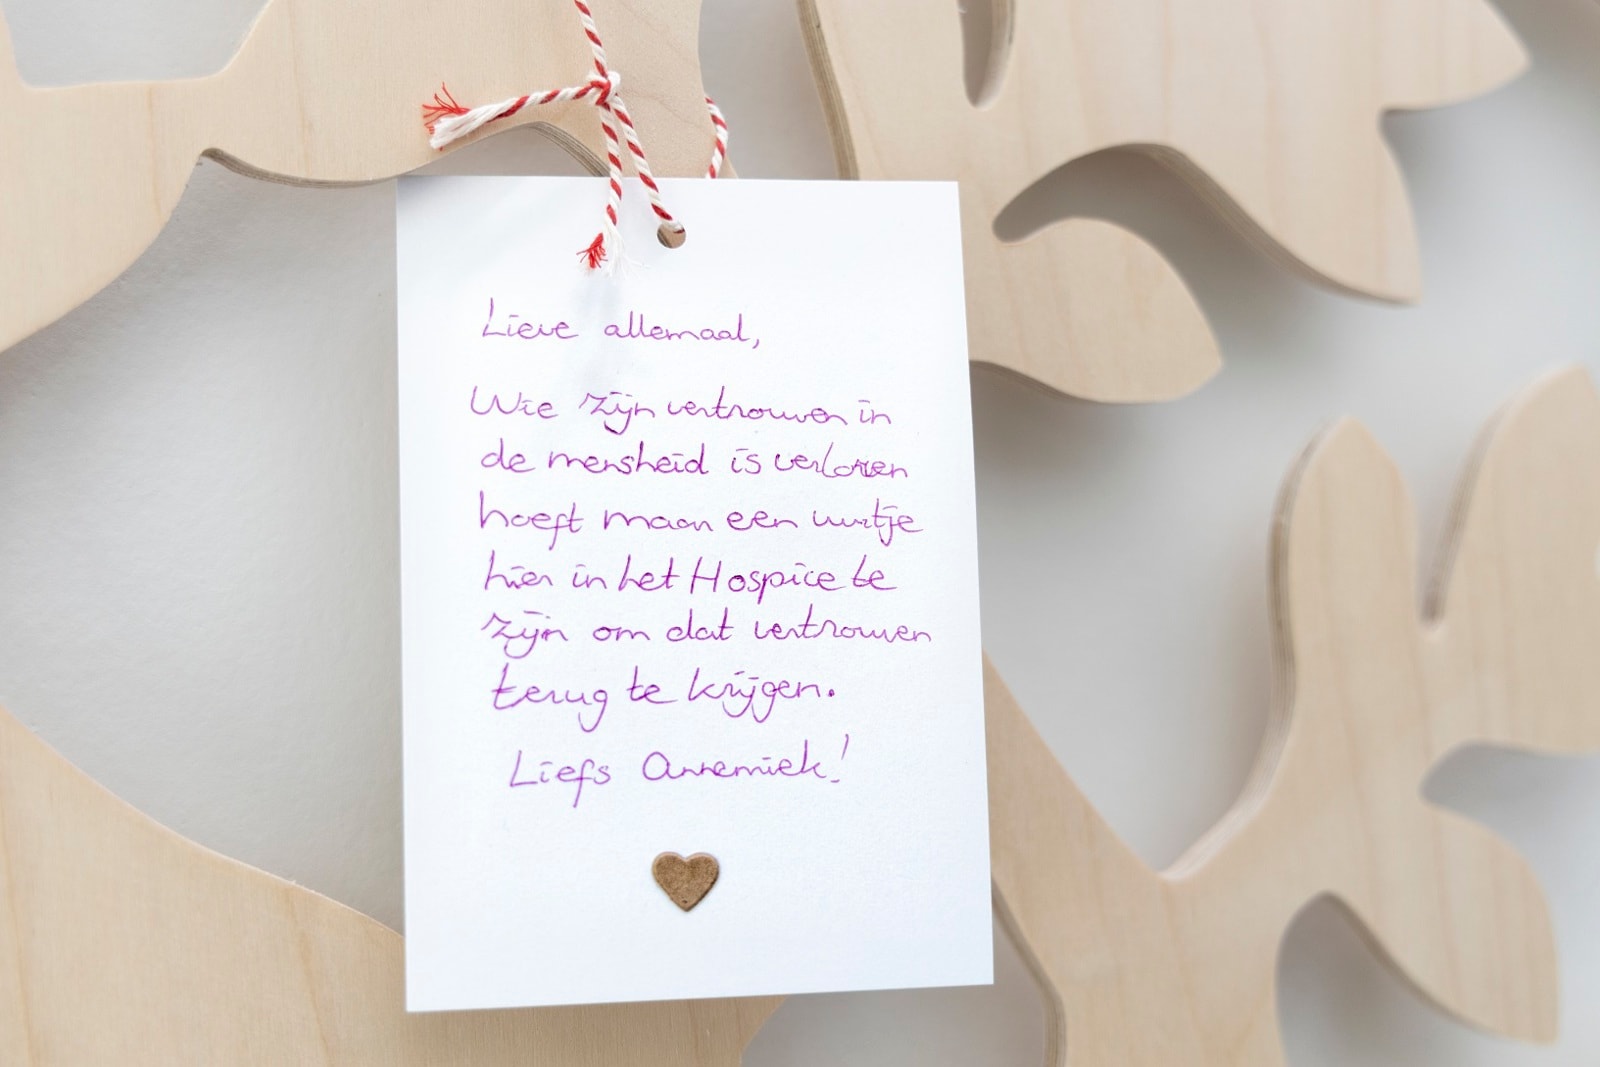 Lieve allemaal,
Wie zijn vertrouwen in
de mensheid is verloren
hoeft maar een uurtje
hier in het Hospice te
zijn om dat vertrouwen
terug te krijgen.
Liefs Annemiek!